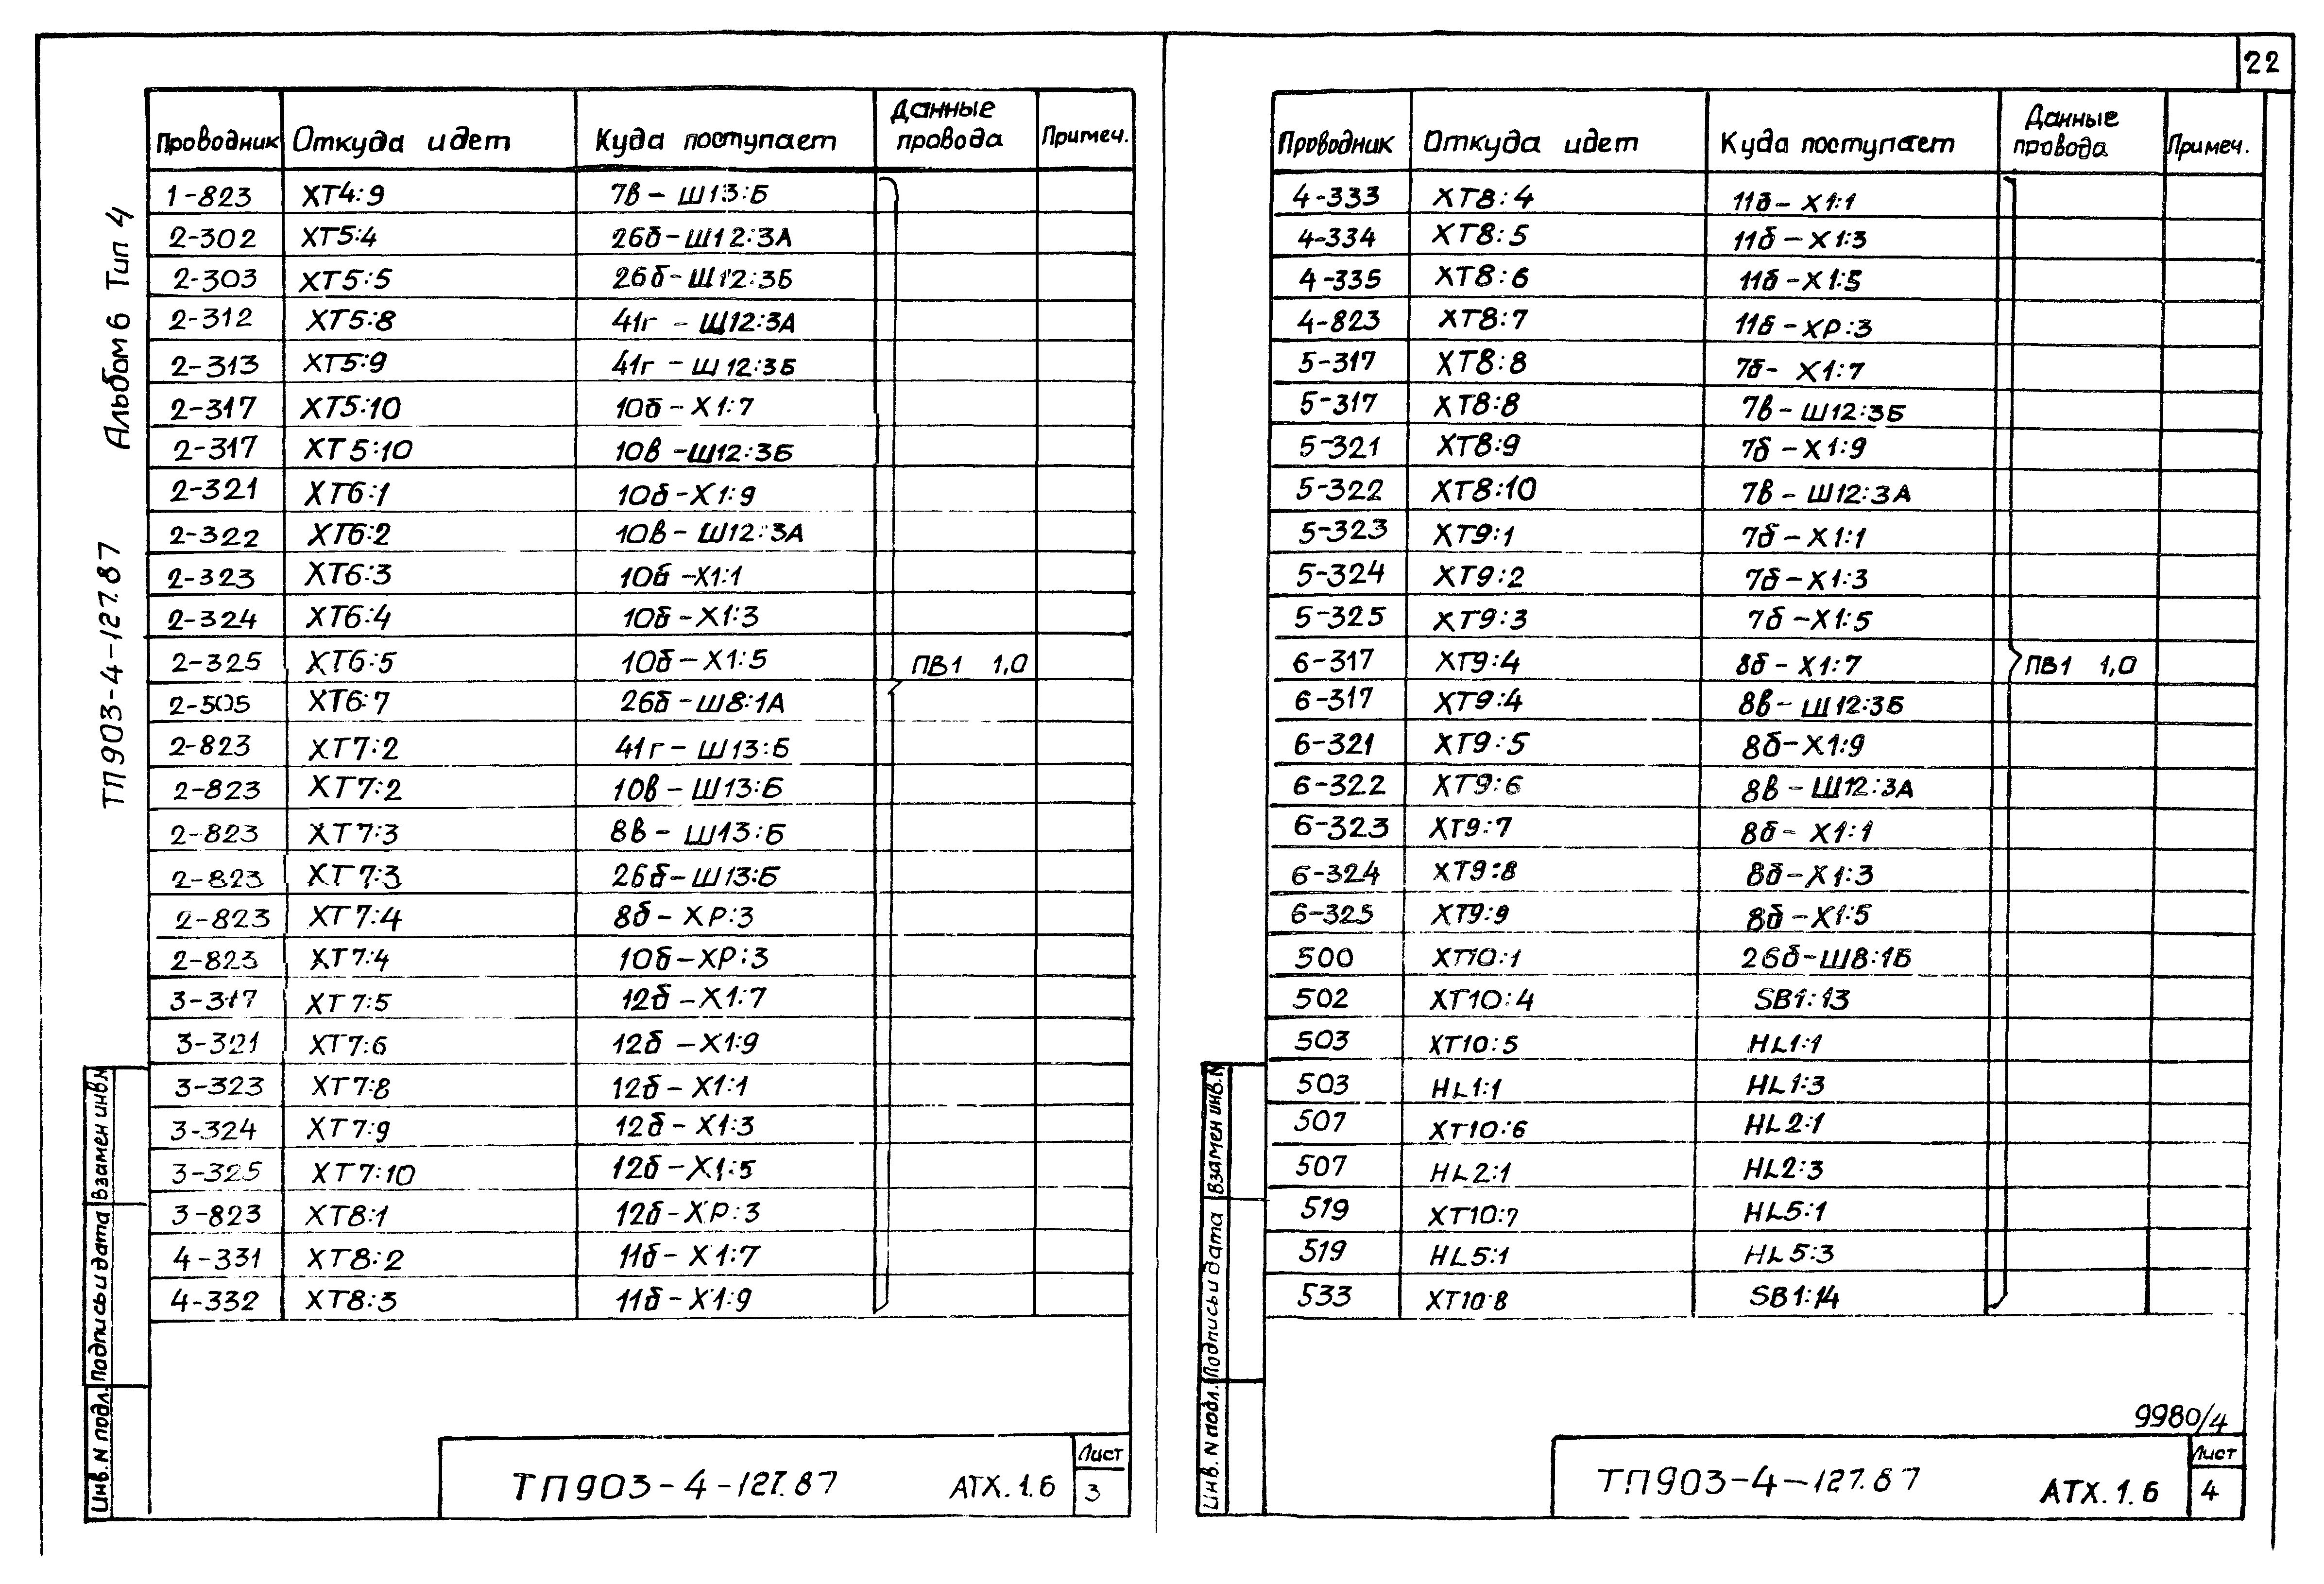 22
Альбом 6 Тип 4
ТП903-4-127.87
Проводник Откуда идет Куда поступает Данные провода Примеч.
1-823 ХТ4:9 7в-Ш13:Б
2-302 ХТ5:4 26б-Ш12:3А
2-303 ХТ5:5 26б-Ш12:3Б
2-312 ХТ5:8 41г-Ш12:3А
2-313 ХТ5:9 41г-Ш12:3Б
2-317 ХТ5:10 10б-Х1:7
2-317 ХТ5:10 10в-Ш12:3Б
2-321 ХТ6:1 10б-Х1:9
2-322 ХТ6:2 10в-Ш12:3А
2-323 ХТ6:3 10б-Х1:1
2-324 ХТ6:4 10б-Х1:3
2-325 ХТ6:5 10б-Х1:5 ПВ1 1,0
2-505 ХТ6:7 26б-Ш8:1А
2-823 ХТ7:2 41г-Ш13:Б
2-823 ХТ7:2 10в-Ш13:Б
2-823 ХТ7:3 8в-Ш13:Б
2-823 ХТ7:3 26б-Ш13:Б
2-823 ХТ7:4 8б-ХР:3
2-823 ХТ7:4 10б-ХР:3
3-317 ХТ7:5 12б-Х1:7
3-321 ХТ7:6 12б-Х1:9
3-323 ХТ7:8 12б-Х1:1
3-324 ХТ7:9 12б-Х1:3
3-325 ХТ7:10 12б-Х1:5
3-823 ХТ8:1 12б-ХР:3
4-331 ХТ8:2 11б-Х1:7
4-332 ХТ8:3 11б-Х1:9
Инв.N подл. Подпись и дата Взамен инв.N
ТП903-4-127.87 АТХ.1.6 Лист 3
Проводник Откуда идет Куда поступает Данные провода Примеч.
4-333 ХТ8:4 11б-Х1:1
4-334 ХТ8:5 11б-Х1:3
4-335 ХТ8:6 11б-Х1:5
4-823 ХТ8:7 11б-ХР:3
5-317 ХТ8:8 7б-Х1:7
5-317 ХТ8:8 7в-Ш12:3Б
5-321 ХТ8:9 7б-Х1:9
5-322 ХТ8:10 7в-Ш12:3А
5-323 ХТ9:1 7б-Х1:1
5-324 ХТ9:2 7б-Х1:3
5-325 ХТ9:3 7б-Х1:5
6-317 ХТ9:4 8б-Х1:7 ПВ1 1,0
6-317 ХТ9:4 8в-Ш12:3Б
6-321 ХТ9:5 8б-Х1:9
6-322 ХТ9:6 8в-Ш12:3А
6-323 ХТ9:7 8б-Х1:1
6-324 ХТ9:8 8б-Х1:3
6-325 ХТ9:9 8б-Х1:5
500 ХТ10:1 26б-Ш8:1Б
502 ХТ10:4 SB1:13
503 ХТ10:5 HL1:1
503 HL1:1 HL1:3
507 ХТ10:6 HL2:1
507 HL2:1 HL2:3
519 ХТ10:7 HL5:1
519 HL5:1 HL5:3
533 ХТ10:8 SB1:14
Инв.N подл. Подпись и дата Взамен инв.N
9980/4
ТП903-4-127.87 АТХ.1.6 Лист 4